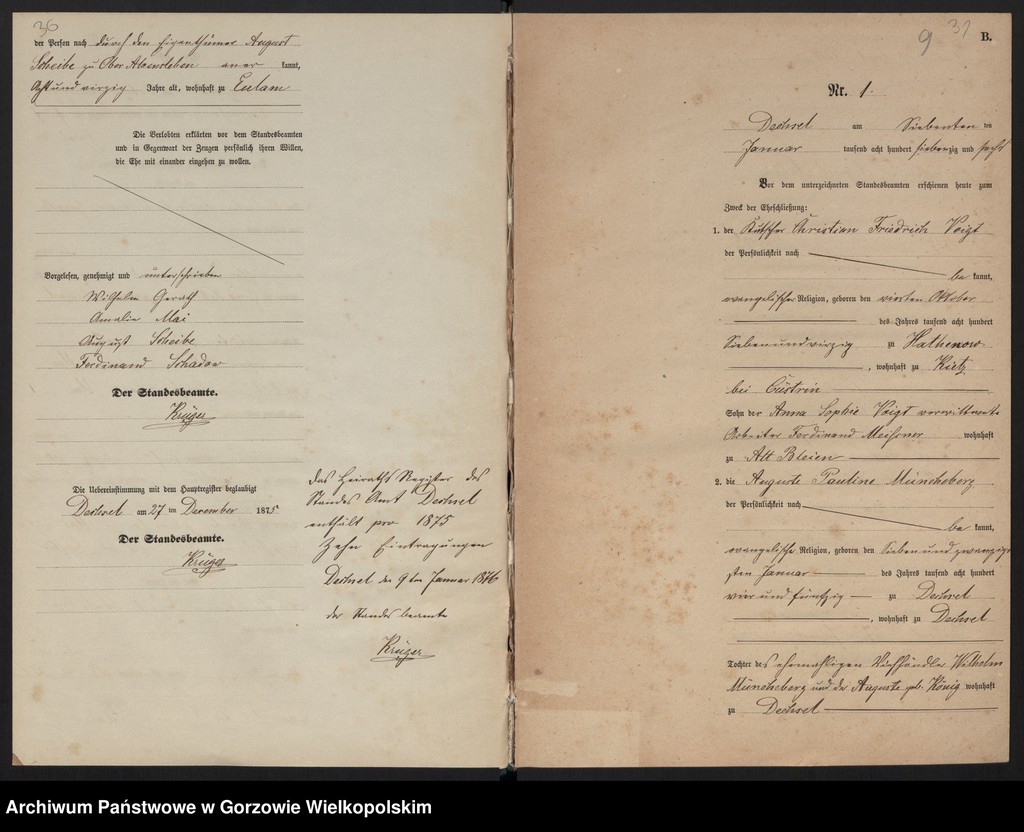 36
der Person nach durch den Eigenthümer August
Scheibe zu Ober Alvensleben aner kannt,
Acht und vierzig Jahre alt, wohnhaft zu Eulam
Die Verlobten erklärten vor dem Standesbeamten
und in Gegenwart der Zeugen persönlich ihren Willen,
die Ehe mit einander eingehen zu wollen.
Vorgelesen, genehmigt und unterschrieben
Wilhelm Gerath
Amalie Mai
August Scheibe
Ferdinand Schadow
Der Standesbeamte.
Krüger
Die Uebereinstimmung mit dem Hauptregister beglaubigt
Dechsel am 27 ten December 1875
Der Standesbeamte.
Krüger
Das Heiraths Register des
Standes Amt Dechsel
enthält pro 1875
Zehn Eintragungen
Dechsel den 9ten Januar 1876
der Standesbeamte
Krüger
9 37 B.
Nr. 1.
Dechsel am Siebenten ten
Januar tausend acht hundert siebenzig und sechs
Vor dem unterzeichneten Standesbeamten erschienen heute zum
Zweck der Eheschließung:
1. der Kutscher Christian Friedrich Voigt
der Persönlichkeit nach
be kannt,
evangelischer Religion, geboren den vierten Oktober
des Jahres tausend acht hundert
Siebenundvierzig zu Hathenow
, wohnhaft zu Kietz
bei Cüstrin
Sohn der Anna Sophie Voigt verwittwete
Arbeiter Ferdinand Meissner wohnhaft
zu Alt Bleien
2. die Auguste Pauline Müncheberg
der Persönlichkeit nach
be kannt,
evangelische Religion, geboren den Sieben und zwanzig
sten Januar des Jahres tausend acht hundert
vier und fünfzig zu Dechsel
, wohnhaft zu Dechsel
Tochter des ehemahligen Viehhändler Wilhelm
Müncheberg und der Auguste geb. König wohnhaft
zu Dechsel
Archiwum Państwowe w Gorzowie Wielkopolskim